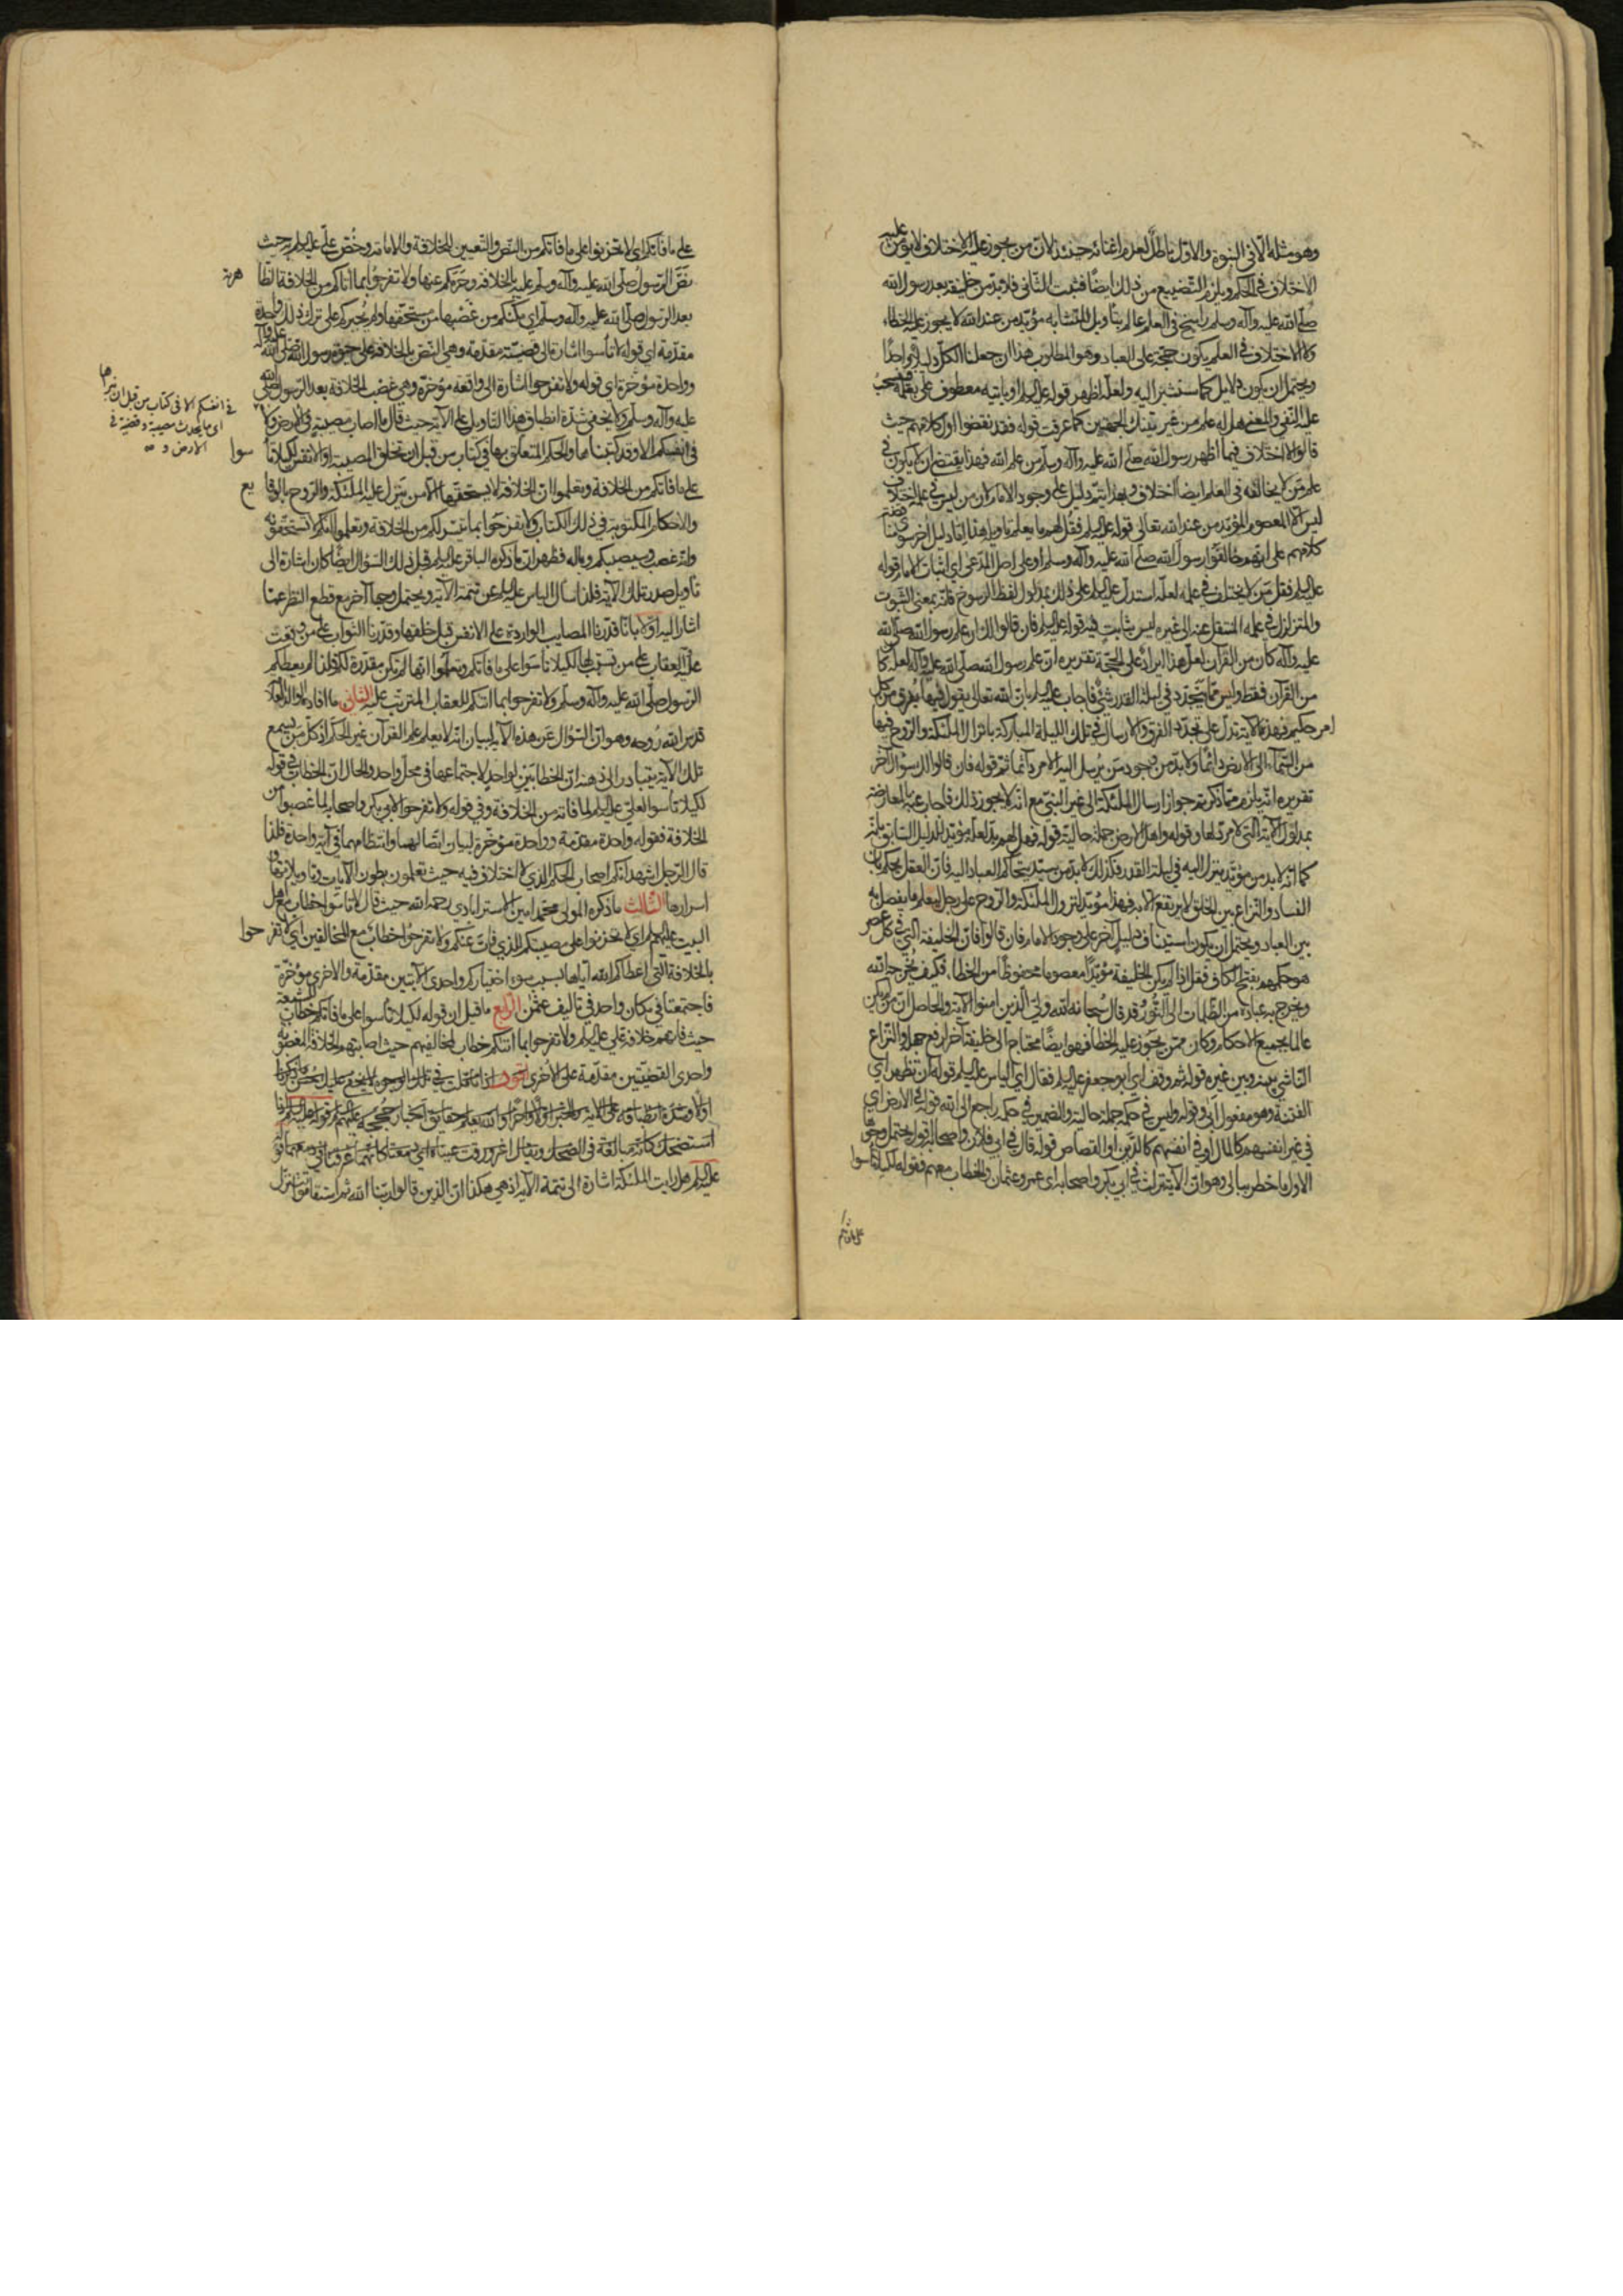 وهو مثله الّا في النبوة والاوّل باطل لعدم اغنائه حينئذ لانّ من يجوز عليه الاختلاف لا يؤمن عليه
الاختلاف في الحكم ويلزم التضييع من ذلك ايضا فثبت الثاني فلا بدّ من خليفة بعد رسول الله
صلّى الله عليه وآله وسلم راسخ في العلم عالم بتأويل المتشابه مؤيّد من عند الله لا يجوز عليه الخطاء
ولا الاختلاف في العلم يكون حجّة على العباد وهو المطلوب هذا ان جعلنا الكلّ دليلا واحدًا
ويحتمل ان يكون دلايل كما سنشير اليه ولعلّه اظهر قوله عليه السلم او يأتيه معطوف على يعلمه
على النفي والمعنى هل له علم من غير تينك الجهتين كما عرفت قوله فقد نقضوا اول كلامهم حيث
قالوا لا اختلاف فيما أظهر رسول الله صلّى الله عليه وآله وسلّم من علم الله فهذا يقتضي ان لا يكون في
علم من لا يخالفه في العلم ايضا اختلاف وبهذا يتمّ دليل على وجود الامام لان من ليس في علمه اختلاف
ليس الّا المعصوم المؤيّد من عند الله تعالى قوله عليه السلم فقل لهم ما يعلم تأويله هذا إمّا دليل آخر سوى
كلامهم على انهم خالفوا رسول الله صلّى الله عليه وسلم أو على اصل المدّعى اي اثبات الامام قوله
عليه السلم فقل من لا يختلف في علمه لعلّه استدلّ عليه السلم على ذلك بمدلول لفظ الرسوخ فانّه بمعنى الثبوت
والمتزلزل في علمه المنتقل عنه الى غيره ليس بثابت فيه قوله عليه السلم فان قالوا لك ان علم رسول الله صلّى الله
عليه وآله كان من القرآن لعلّ هذا ايراد على الحجّة تقريره انّ علم رسول الله صلّى الله عليه وآله لعلّه كان
من القرآن فقط وليس ممّا يتجدّد في ليلة القدر شيء فاجاب عليه السلم بان الله تعالى يقول فيها يفرق كل
امر حكيم فهذه الآية تدل على تجدّد الفرق والارسال في تلك الليلة المباركة بانزال الملئكة والروح فيها
من السّماء الى الارض دائمًا ولا بدّ من وجود من يُرسل اليه الامر دائما ثم قوله فان قالوا لك سؤال آخر
تقريره انّه يلزم ممّا ذكرتم جواز ارسال الملئكة الى غير النبيّ مع انّه لا يجوز ذلك فاجاب عنه بالمعارضة
بمدلول الآية التي لا مردّ لها وقوله واهل الارض جملة حالية قوله فهل لهم بدّ لعلّه مؤيّد للدليل السابق بانّه
كما انّه لا بد من مؤيّد ينزل اليه في ليلة القدر فكذلك لا بدّ من سيّد يتحاكم العباد اليه فانّ العقل يحكم بان
الفساد والنزاع بين الخلق لا يرتفع الّا به فهذا مؤيّد لنزول الملئكة والروح على رجل ليعلم ما يفصل به
بين العباد ويحتمل ان يكون استيناف دليل آخر على وجود الامام فان قالوا فان الخليفة التي في كل عصر
هو حكمهم بفتح الكاف فقل اذا لم يكن الخليفة مؤيّدًا معصوما محفوظًا من الخطاء فكيف يخرجه الله
ويخرج به عباده من الظلمات الى النّور وقد قال سبحانه الله وليّ الّذين امنوا الآية والحاصل انّ من لم يكن
عالما بجميع الاحكام وكان ممّن يجوز عليه الخطا فهو ايضًا محتاج الى خليفة آخر لرفع جهله والنّزاع
الناشي بينه وبين غيره قوله ثم وقف اي ابو جعفر عليه السلم فقال اي الياس عليه السلم قوله ان تظهر اي
الفتنة وهو مفعول أبى وقوله وليس في حكمه جملة حالية والضمير في حكمه راجع الى الله قوله في الارض اي
في غير انفسهم كالمال أو في انفسهم كالدّين أو القصاص قوله قال في ابي فلان واصحابه اقول يحتمل وجوهًا
الاول ما خطر ببالي وهو ان الآية نزلت في ابي بكر واصحابه اي عمر وعثمان والخطاب معهم فقوله لكيلا تأسوا
على ما فاتكم
على ما فاتكم اي لا تحزنوا على ما فاتكم من النّص والتّعيين للخلافة والامامة وخُصّ علي عليه السلم به حيث
نصّ الرّسول صلّى الله عليه وآله وسلم عليه بالخلافة وحرّمكم عنها ولا تفرحوا بما اتاكم من الخلافة الظّا
هرية
بعد الرّسول صلّى الله عليه وآله وسلّم اي مكّنكم من غصبها من مستحقّها ولم يُجبركم على ترك ذلك واحدة
مقدّمة اي قوله لا تأسوا اشارة الى قضيّة مقدّمة وهي النّص بالخلافة في حيوة رسول الله صلّى الله عليه وآله
وواحدة مؤخّرة اي قوله ولا تفرحوا اشارة الى واقعة مؤخّرة وهي غصب الخلافة بعد الرّسول صلّى الله
عليه وآله وسلّم ولا يخفى شدّة انطباق هذا التأويل على الآية حيث قال ما اصاب من مصيبة في الارض ولا
في انفسكم الّا في كتاب من قبل ان نبرأها
اي ما يحدث مصيبة وقضيّة في
الارض و
في انفسكم الّا وقد كتبناها والحكم المتعلّق بها في كتاب من قبل ان نخلق المصيبة او الانفس لكيلا تأ
سوا
على ما فاتكم من الخلافة وتعلموا انّ الخلافة لا يستحقّها الّا من ينزل عليه الملئكة والرّوح بالوقا
يع
والاحكام المكتوبة في ذلك الكتاب ولا تفرحوا بما تيسّر لكم من الخلافة وتعلموا انّكم لا تستحقّونه
وانّه غصب وسيصيبكم وباله فظهر انّ ما ذكره الباقر عليه السلم قبل ذلك السّؤال ايضًا كان اشارة الى
تأويل صدر تلك الآية فلذا سأل الياس عليه السلم عن تتمة الآية ويحتمل وجها آخر مع قطع النظر عمّا
اشار اليه اوّلا بانّا قدّرنا المصايب الواردة على الانفس قبل خلقها وقدّرنا الثواب على من وقعت
عليه والعقاب على من تسبّب لها لكيلا تأسوا على ما فاتكم وتعلموا انّها لم تكن مقدّرة لكم فلذا لم يعطكم
الرّسول صلّى الله عليه وآله وسلّم ولا تفرحوا بما اتٰكم للعقاب المترتّب عليه الثاني ما افاده الوالد العلّامة
قدّس الله روحه وهو انّ السّؤال عن هذه الآية لبيان انّه لا يعلم علم القرآن غير الحكم اذ كلّ من يسمع
تلك الآية يتبادر الى ذهنه انّ الخطابين لواحدٍ لاجتماعها في محلّ واحد والحال انّ الخطاب في قوله
لكيلا تأسوا لعليّ عليه السلم لما فاته من الخلافة وفي قوله ولا تفرحوا لابي بكر واصحابه لما غصبوا من
الخلافة فقوله واحدة مقدّمة وواحدة مؤخّرة لبيان اتّصالهما وانتظامهما في آية واحدة فلذا
قال الرّجل اشهد انّكم اصحاب الحكم الّذي لا اختلاف فيه حيث تعلمون بطون الآيات وتأويلاتها و
اسرارها الثالث ما ذكره المولى محمد امين الاسترابادي رحمه الله حيث قال لا تأسوا خطاب مع اهل
البيت عليهم السلم اي لا تحزنوا على مصيبتكم الذي فات عنكم ولا تفرحوا خطاب مع المخالفين اي لا تفر
حوا
بالخلافة الّتي اعطاكم الله ايّاها بسبب سوء اختياركم واحدى الآيتين مقدّمة والاخرى مؤخّرة
فاجتمعتا في مكان واحد في تاليف عثمٰن الرّابع ما قيل ان قوله لكيلا تأسوا على ما فاتكم خطاب للشيعة
حيث فاتهم خلافة علي عليه السلم ولا تفرحوا بما اتٰكم خطاب لمخالفيهم حيث اصابتهم الخلافة المغصوبة
واحدى القضيّتين مقدّمة على الاخرى اقول اذا تأمّلت في تلك الوجوه لا يخفى عليك حسن ما ذكرنا
اوّلا وشدّة انطباقه على الآية والخبر اوّلا وآخرًا والله يعلم حقايق اخبار حججه عليهم السلم قوله عليه السلم اذا
استضحك كانّه مبالغة في الضحك ويقال اغرورقت عيناه اي دمعتا كانهما غرقتا في دمعهما قوله
عليه السلم هل رايت الملئكة اشارة الى تتمة الآية اذ هي هكذا انّ الّذين قالوا ربّنا الله ثم استقاموا تتنزّل